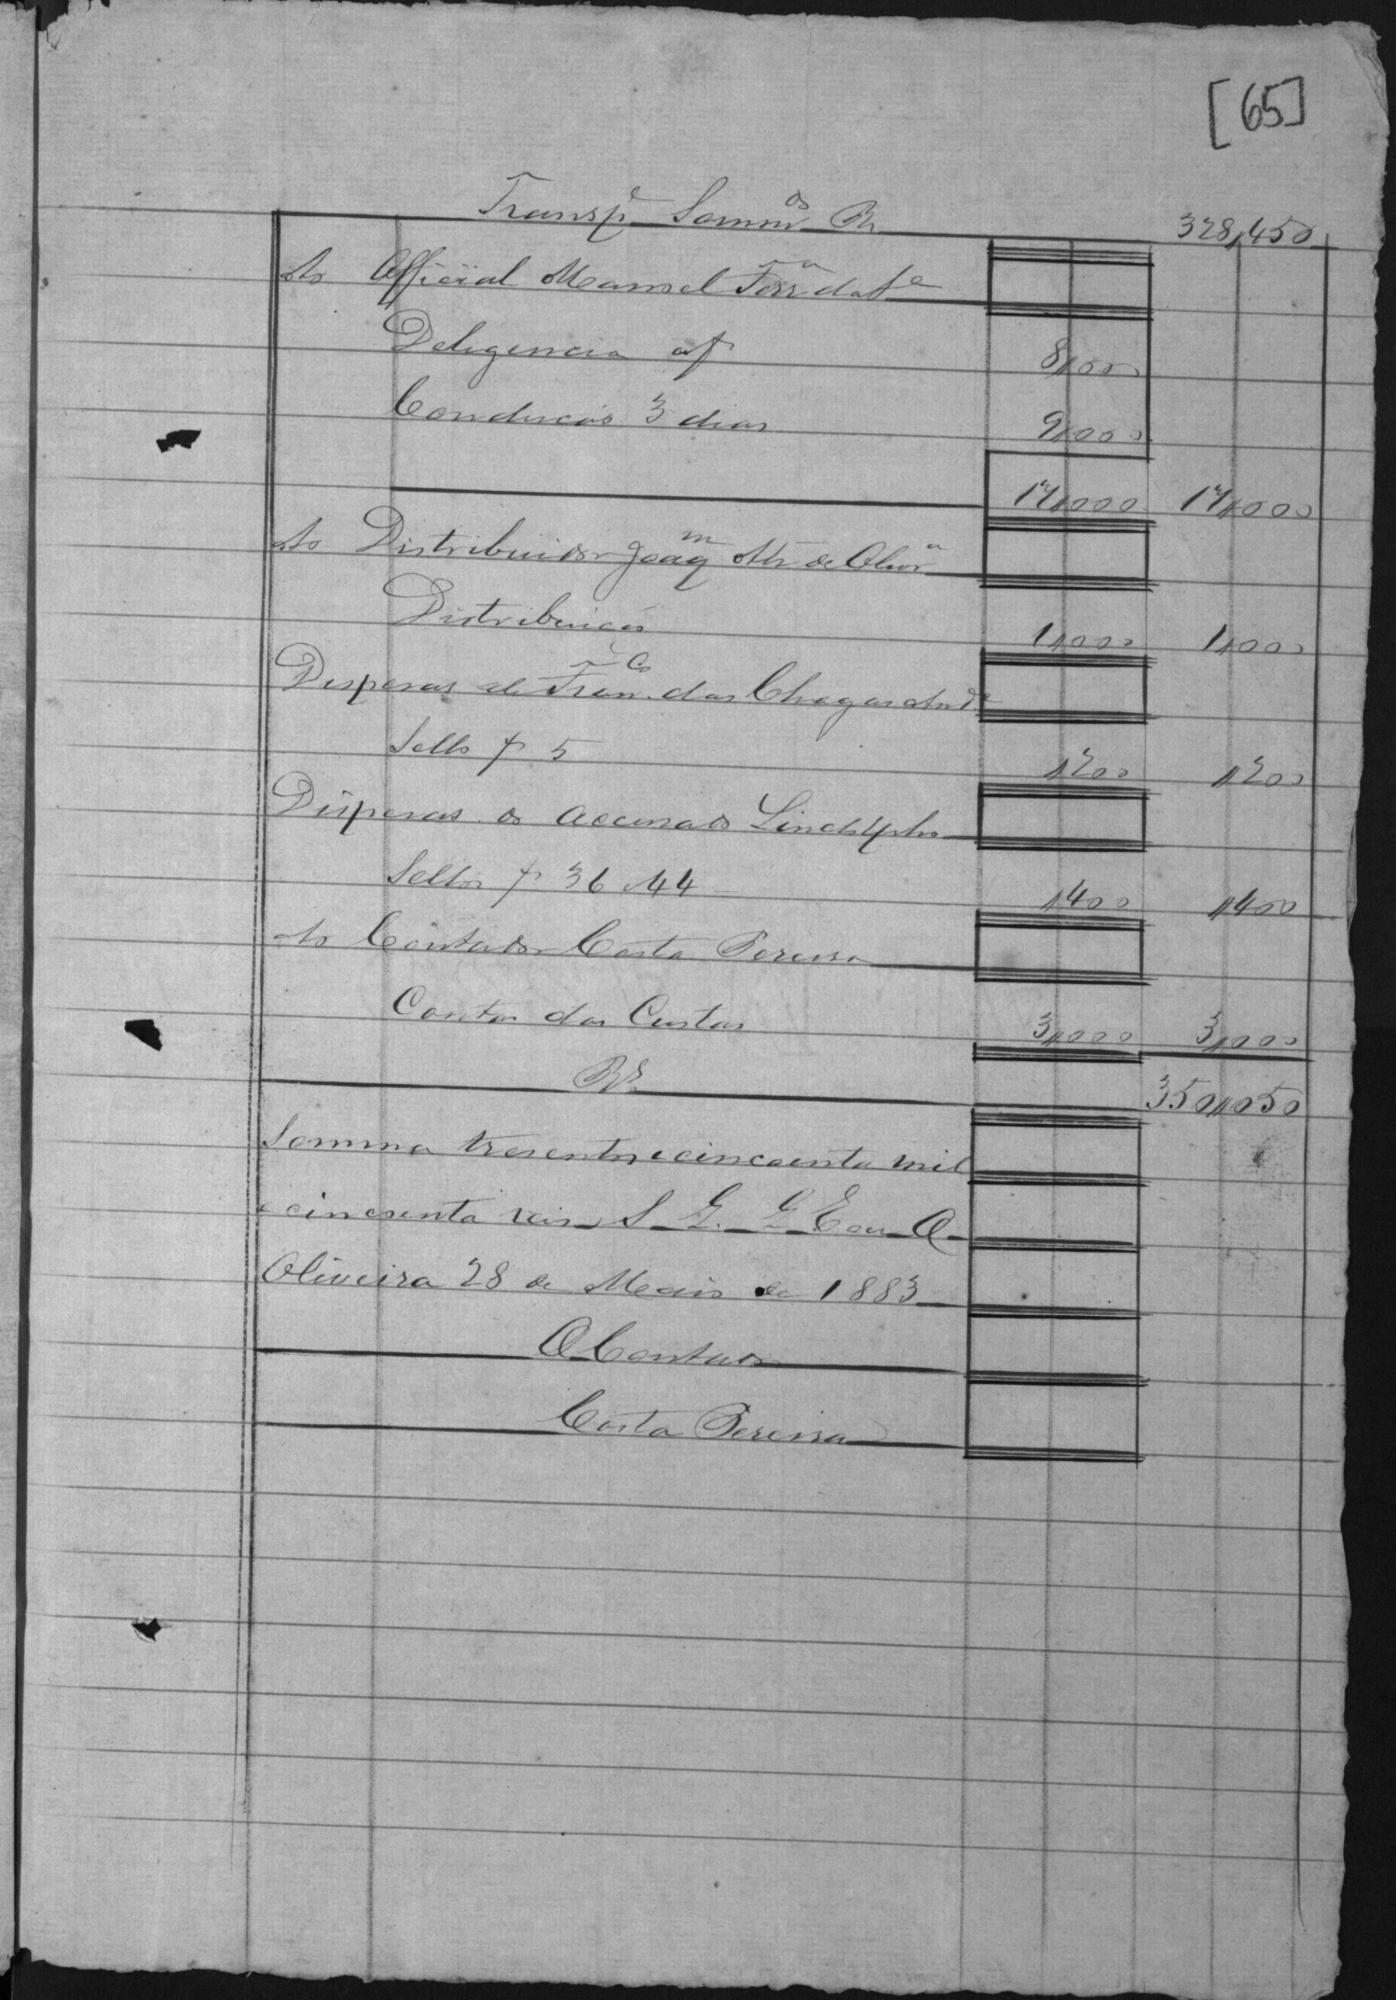 [65]
Transp.e Somm.os Rs 328,450
Ao Official Manoel Ferr.a da
Deligencia af 8,000
Conducão 3 dias 9,000
17,000 17,000
Ao Distribuidor Joaq.m Alz de Olivr.a
Distribuicão 1,000 1,000
Dispesas de Fran.co das Chagas And.e
Sello f 5 ,200 ,200
Dispesas do accusado Lindolpho
Sellos f 36 44 ,400 ,400
Ao Contador Costa Pereira
Conta das Custas 3,000 3,000
Rs. 350,050
Somma tresentos e cincoenta mil
e cincoenta reis S. G. E ou O
Oliveira 28 de Maio de 1883
O Contador
Costa Pereira